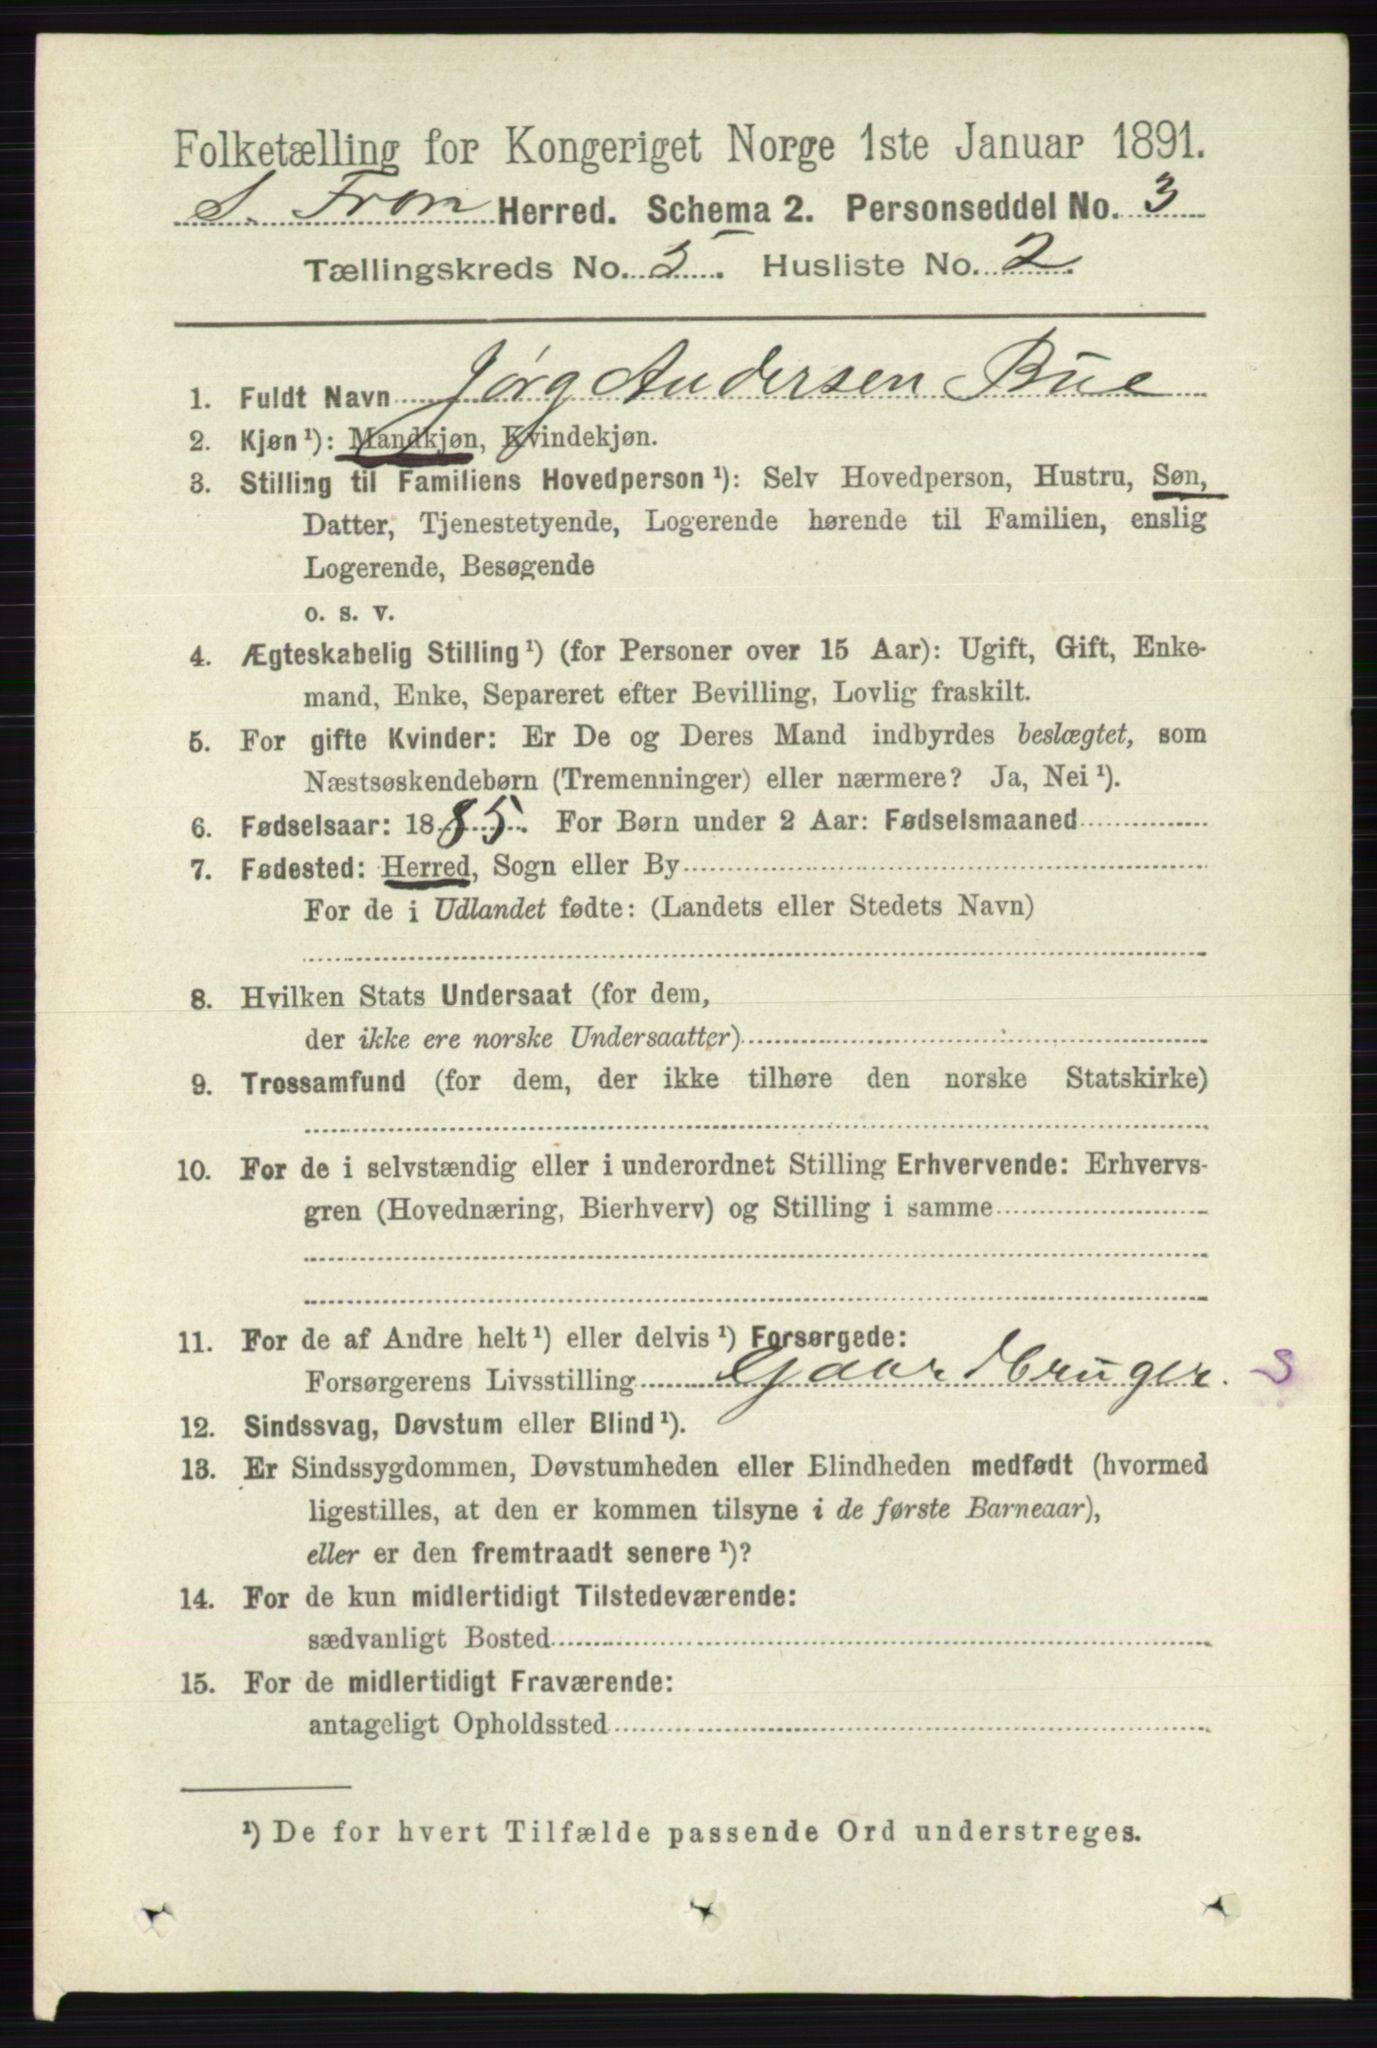 Folketælling for Kongeriget Norge 1ste Januar 1891.
S. Fron Herred. Schema 2. Personseddel No. 3
Tællingskreds No. 5. Husliste No. 2.
1. Fuldt Navn Jørg Andersen Bue
2. Kjøn ¹): Mandkjøn, Kvindekjøn.
3. Stilling til Familiens Hovedperson ¹): Selv Hovedperson, Hustru, Søn,
Datter, Tjenestetyende, Logerende hørende til Familien, enslig
Logerende, Besøgende
o. s. v.
4. Ægteskabelig Stilling ¹) (for Personer over 15 Aar): Ugift, Gift, Enke-
mand, Enke, Separeret efter Bevilling, Lovlig fraskilt.
5. For gifte Kvinder: Er De og Deres Mand indbyrdes beslægtet, som
Næstsøskendebørn (Tremenninger) eller nærmere? Ja, Nei ¹).
6. Fødselsaar: 1885. For Børn under 2 Aar: Fødselsmaaned
7. Fødested: Herred, Sogn eller By
For de i Udlandet fødte: (Landets eller Stedets Navn)
8. Hvilken Stats Undersaat (for dem,
der ikke ere norske Undersaatter)
9. Trossamfund (for dem, der ikke tilhøre den norske Statskirke)
10. For de i selvstændig eller i underordnet Stilling Erhvervende: Erhvervs-
gren (Hovednæring, Bierhverv) og Stilling i samme
11. For de af Andre helt ¹) eller delvis ¹) Forsørgede:
Forsørgerens Livsstilling Gaardbruger. S
12. Sindssvag, Døvstum eller Blind ¹).
13. Er Sindssygdommen, Døvstumheden eller Blindheden medfødt (hvormed
ligestilles, at den er kommen tilsyne i de første Barneaar),
eller er den fremtraadt senere ¹)?
14. For de kun midlertidigt Tilstedeværende:
sædvanligt Bosted
15. For de midlertidigt Fraværende:
antageligt Opholdssted
¹) De for hvert Tilfælde passende Ord understreges.